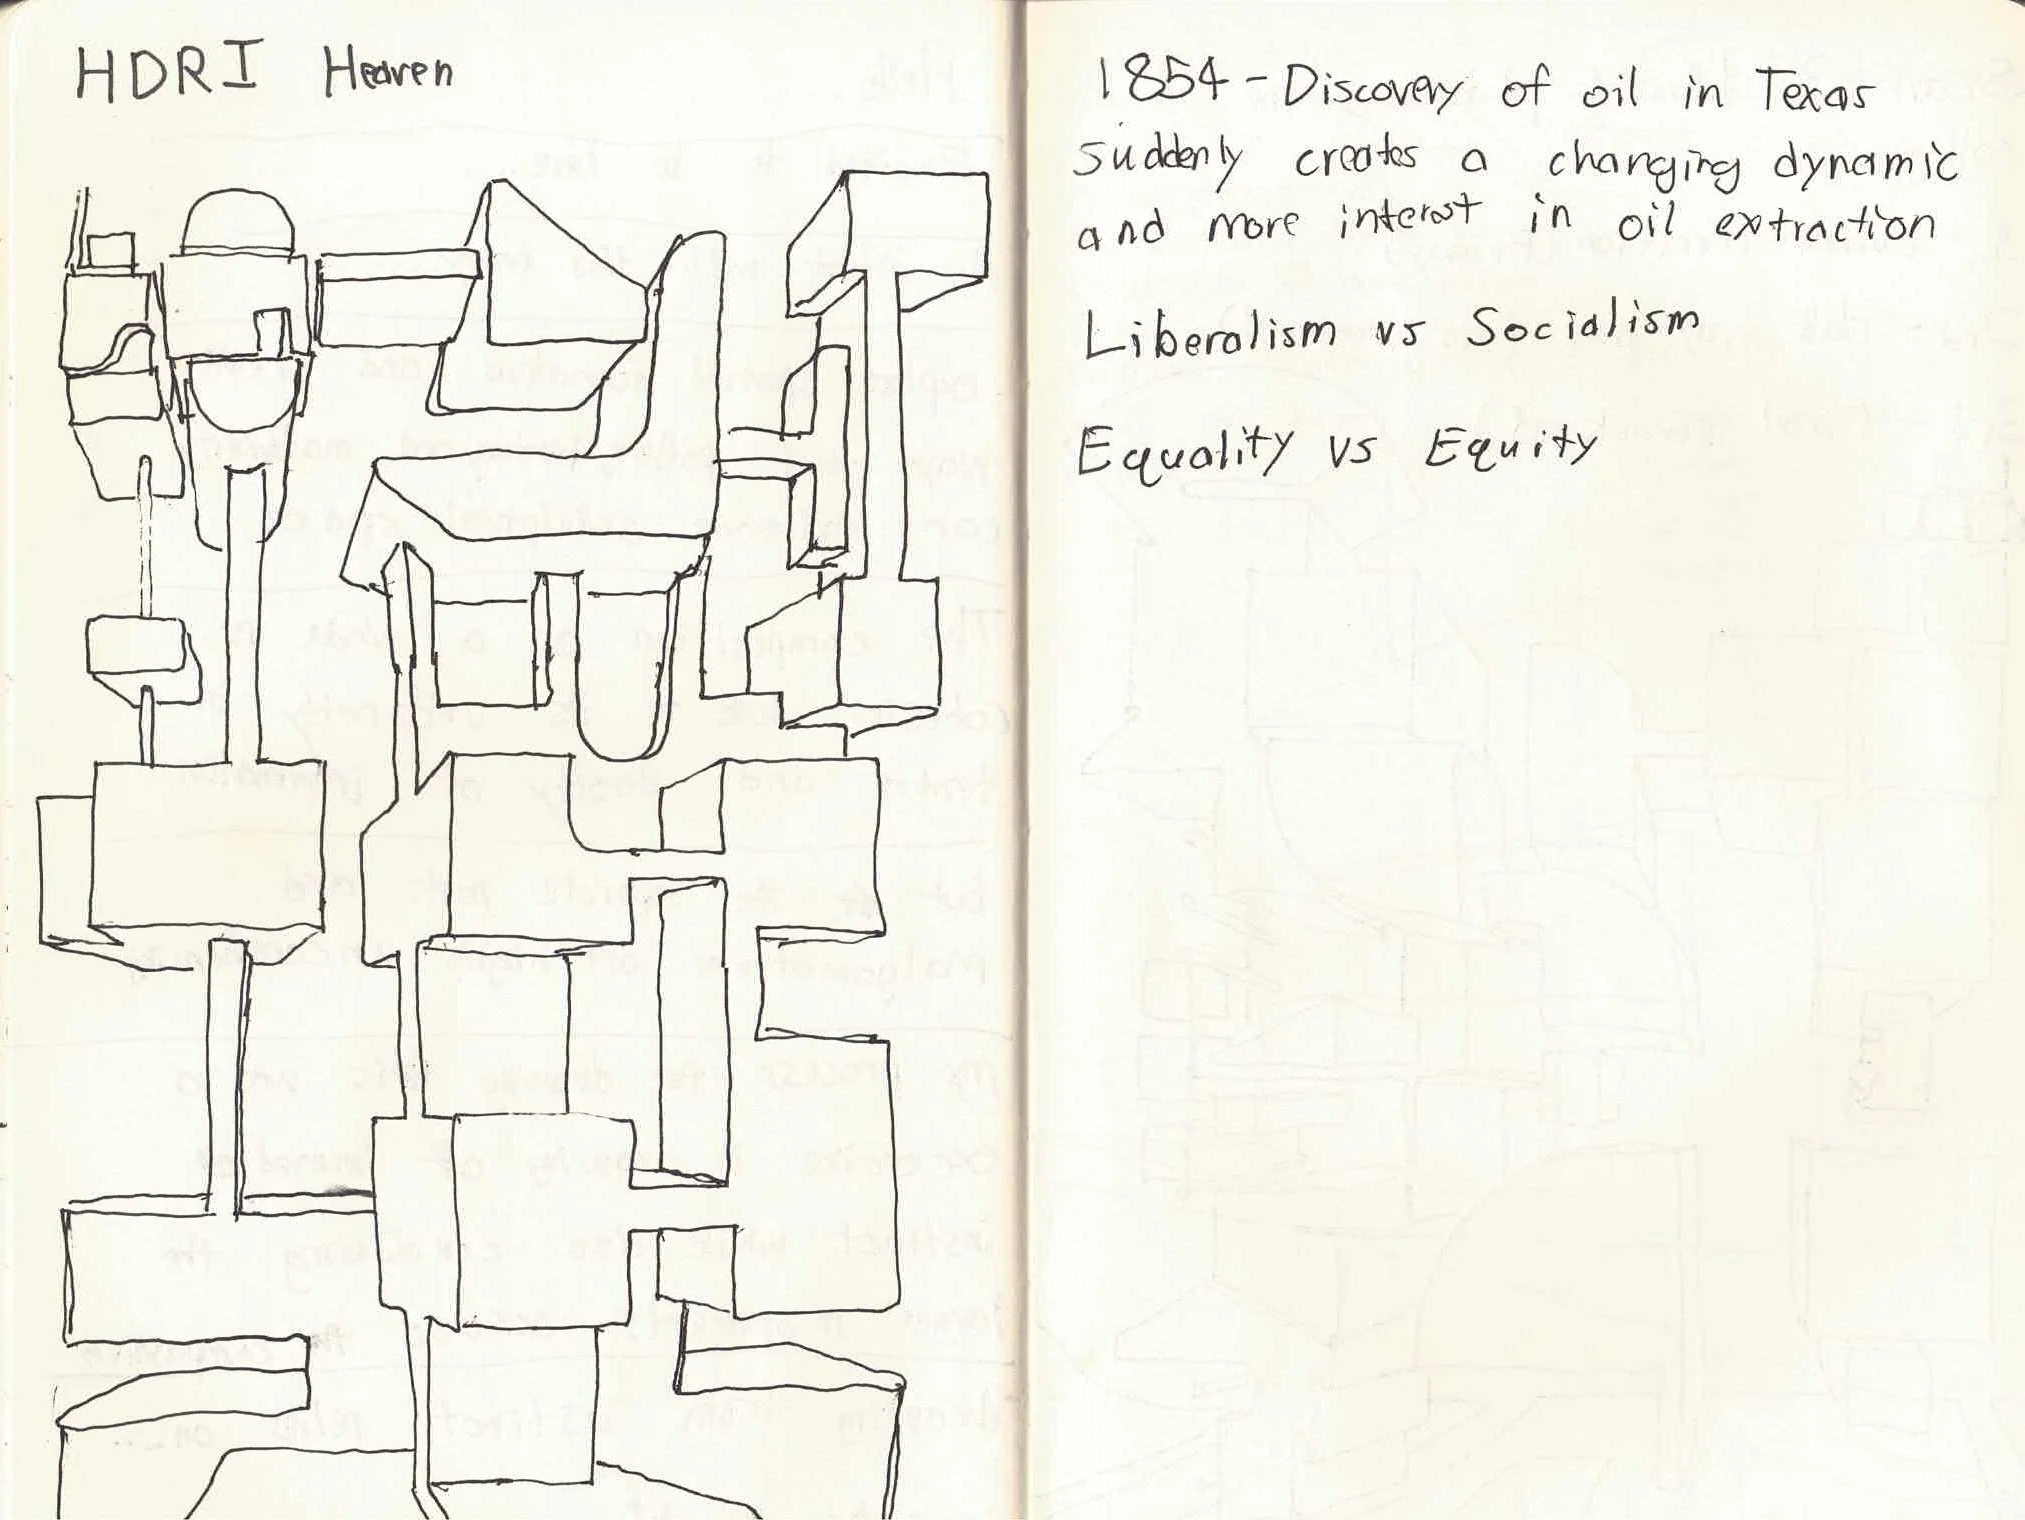 HDRI Heaven
1854 - Discovery of oil in Texas
suddenly creates a changing dynamic
and more interest in oil extraction
Liberalism vs Socialism
Equality vs Equity